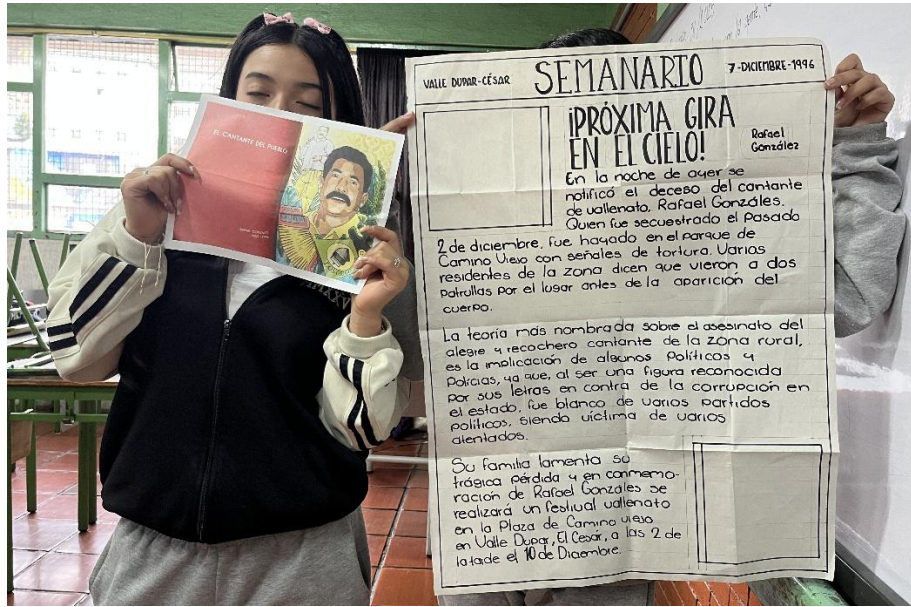 EL CANTANTE DEL PUEBLO
VALLE DUPAR-CÉSAR
SEMANARIO
7-DICIEMBRE-1996
¡PRÓXIMA GIRA
EN EL CIELO!
Rafael
González
En la noche de ayer se
notificó el deceso del cantante
de vallenato, Rafael Gonzáles.
Quien fue secuestrado el pasado
2 de diciembre, fue hayado en el parque de
Camino Viejo con señales de tortura. Varios
residentes de la zona dicen que vieron, a dos
patrullas por el lugar antes de la aparición del
cuerpo.
La teoría más nombrada sobre el asesinato del
alegre y recochero cantante de la zona rural,
es la implicación de algunos Políticos y
Policías, ya que, al ser una figura reconocida
por sus letras en contra de la corrupción en
el estado, fue blanco de varios partidos
políticos, siendo víctima de varios
atentados.
Su familia lamenta su
trágica pérdida y en conmemo-
ración de Rafael Gonzáles se
realizará un festival vallenato
en la Plaza de Camino viejo
en Valle Dupar, El Cesar, a las 2 de
latade el 10 de Diciembre.